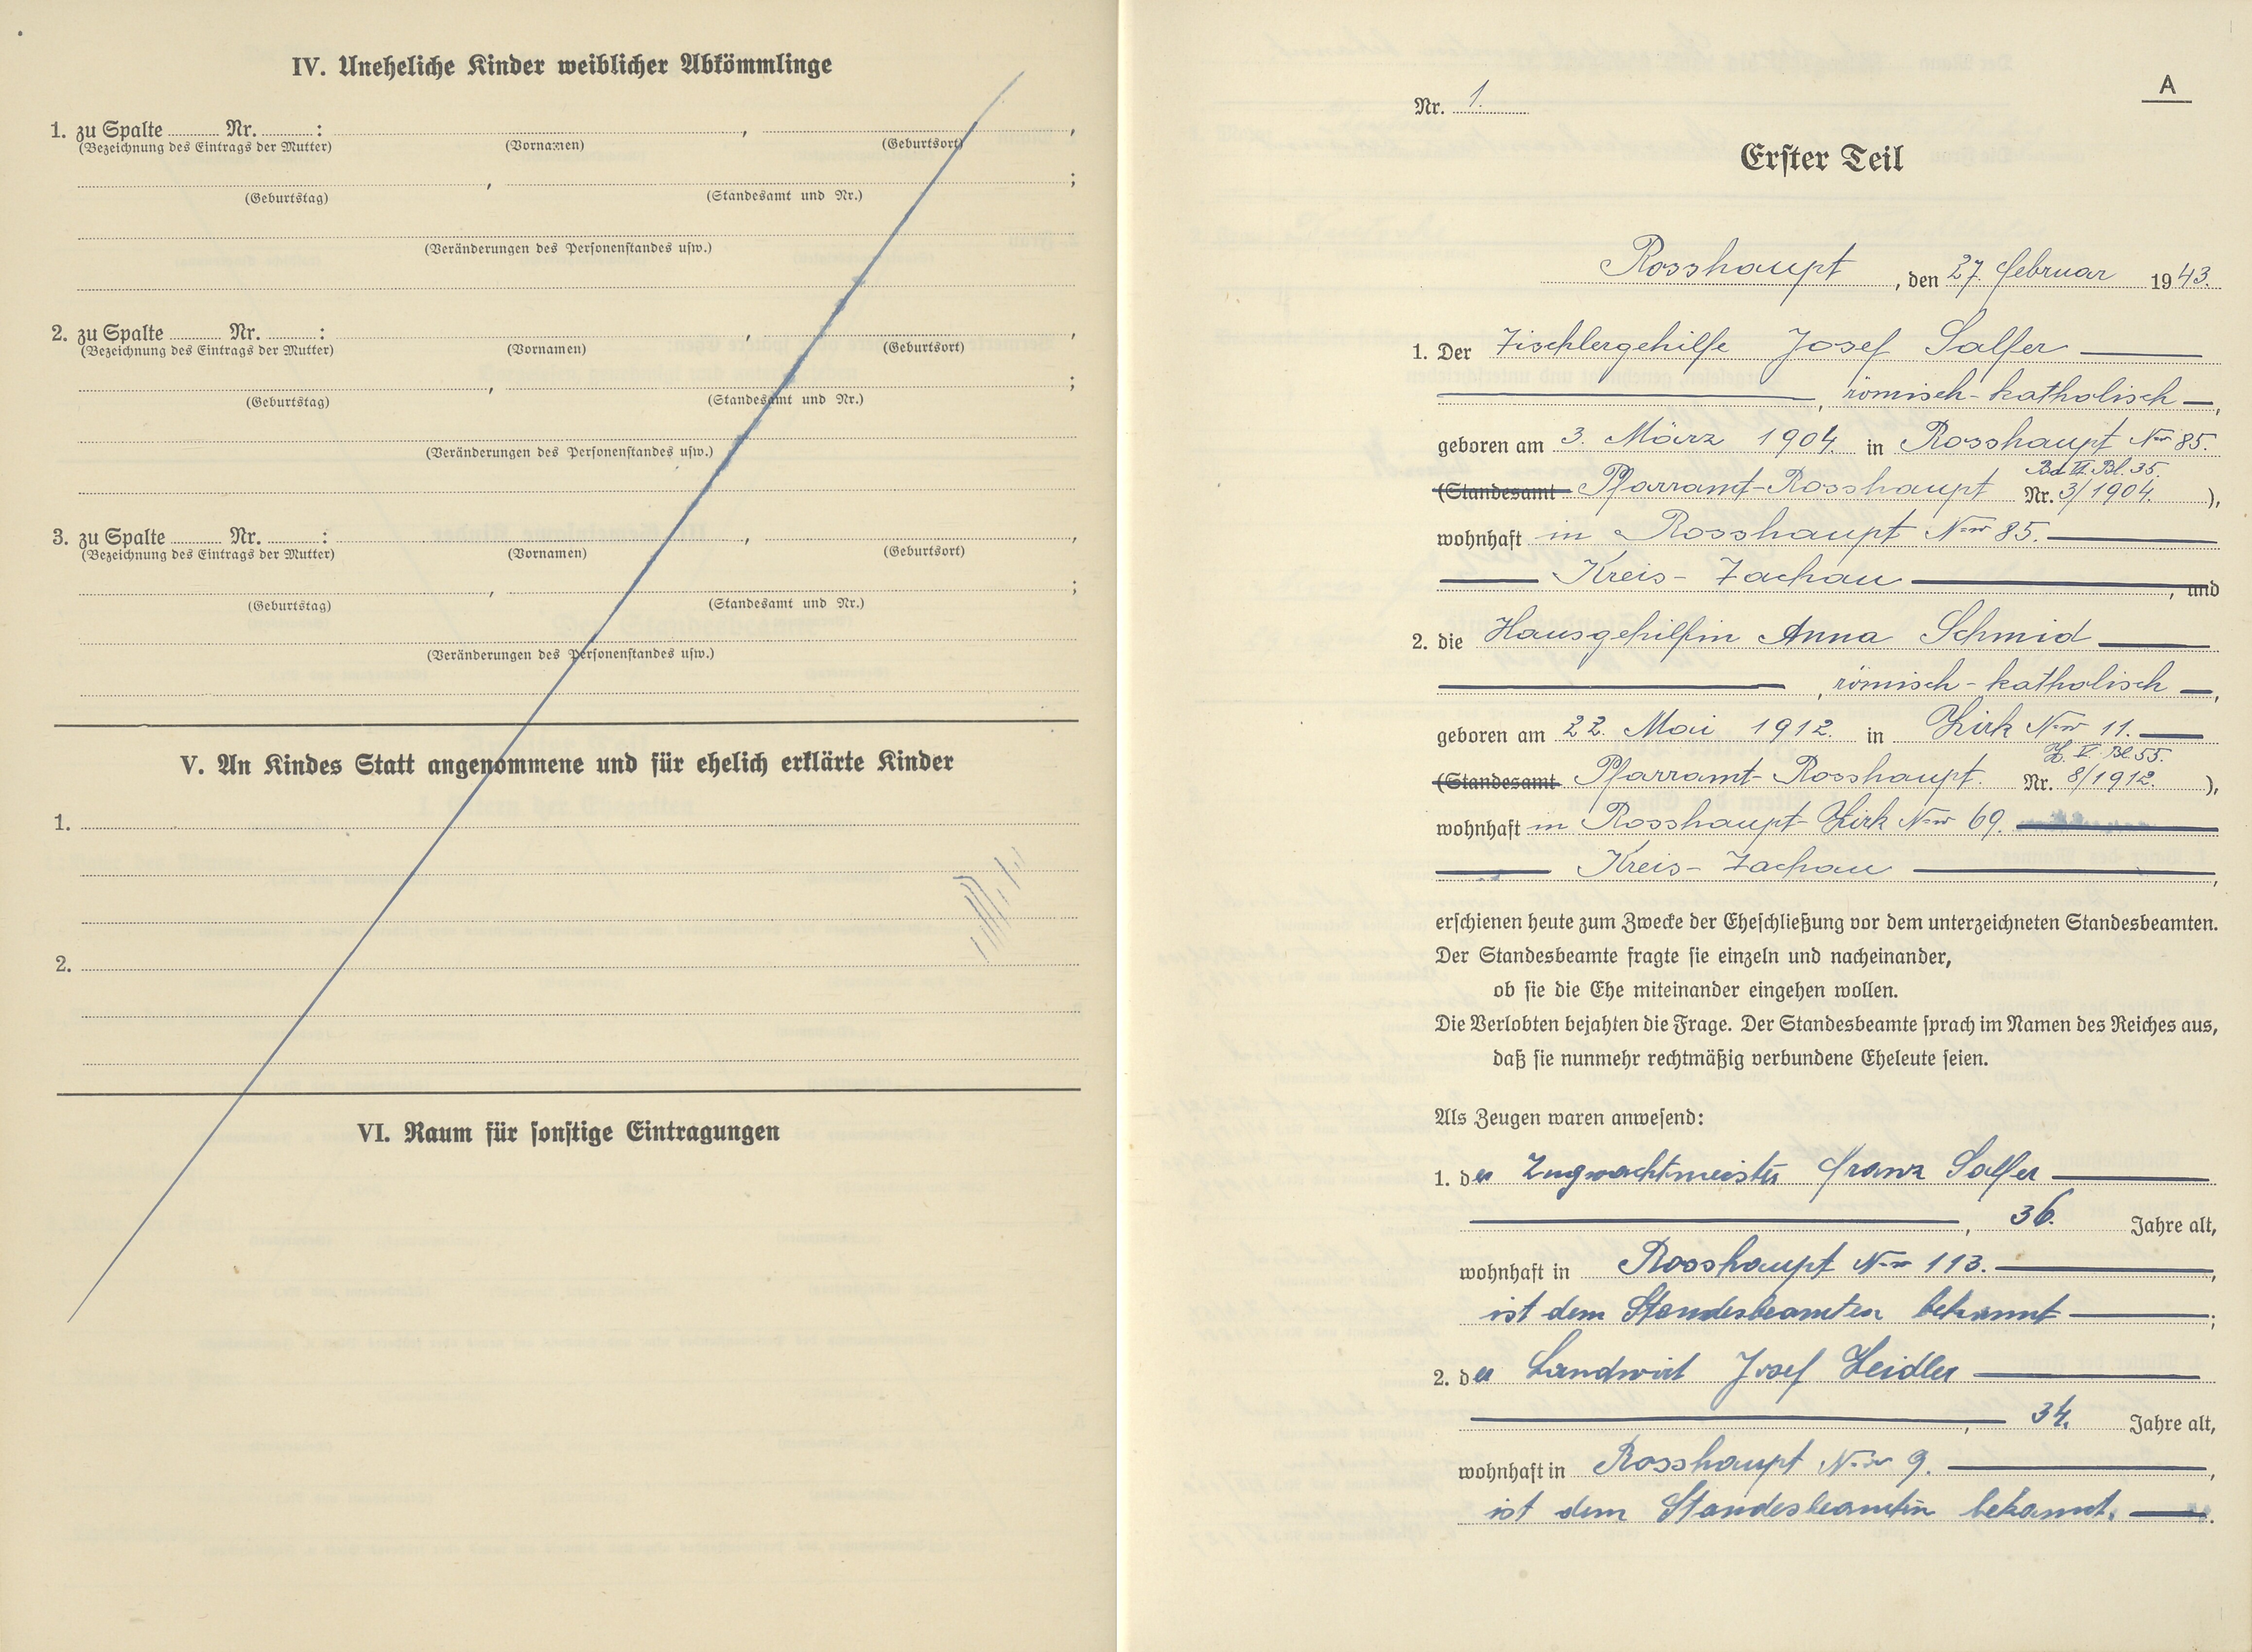 IV. Uneheliche Kinder weiblicher Abkömmlinge
1. zu Spalte Nr. : , ,
(Bezeichnung des Eintrags der Mutter) (Vornamen) (Geburtsort)
, ;
(Geburtstag) (Standesamt und Nr.)
(Veränderungen des Personenstandes usw.)
2. zu Spalte Nr. : , ,
(Bezeichnung des Eintrags der Mutter) (Vornamen) (Geburtsort)
, ;
(Geburtstag) (Standesamt und Nr.)
(Veränderungen des Personenstandes usw.)
3. zu Spalte Nr. : , ,
(Bezeichnung des Eintrags der Mutter) (Vornamen) (Geburtsort)
, ;
(Geburtstag) (Standesamt und Nr.)
(Veränderungen des Personenstandes usw.)
V. An Kindes Statt angenommene und für ehelich erklärte Kinder
1.
2.
VI. Raum für sonstige Eintragungen
A
Nr. 1.
Erster Teil
Rosshaupt, den 27. Februar 1943.
1. Der Tischlergehilfe Josef Salfer
, römisch-katholisch,
geboren am 3. März 1904. in Rosshaupt Nr 85.
Bd. VI. Bl. 35.
(Standesamt Pfarramt-Rosshaupt Nr. 3/1904. ),
wohnhaft in Rosshaupt Nr 85.
Kreis-Tachau, und
2. die Hausgehilfin Anna Schmid
, römisch-katholisch,
geboren am 22. Mai 1912. in Zirk Nr 11.
Z. V. Bl. 55.
(Standesamt Pfarramt-Rosshaupt. Nr. 8/1912. ),
wohnhaft in Rosshaupt-Zirk Nr 69.
Kreis-Tachau,
erschienen heute zum Zwecke der Eheschließung vor dem unterzeichneten Standesbeamten.
Der Standesbeamte fragte sie einzeln und nacheinander,
ob sie die Ehe miteinander eingehen wollen.
Die Verlobten bejahten die Frage. Der Standesbeamte sprach im Namen des Reiches aus,
daß sie nunmehr rechtmäßig verbundene Eheleute seien.
Als Zeugen waren anwesend:
1. der Zugwachtmeister Franz Salfer
, 36. Jahre alt,
wohnhaft in Rosshaupt Nr 113.,
ist dem Standesbeamten bekannt;
2. der Landwirt Josef Zeidler
, 34. Jahre alt,
wohnhaft in Rosshaupt Nr 9.,
ist dem Standesbeamten bekannt.